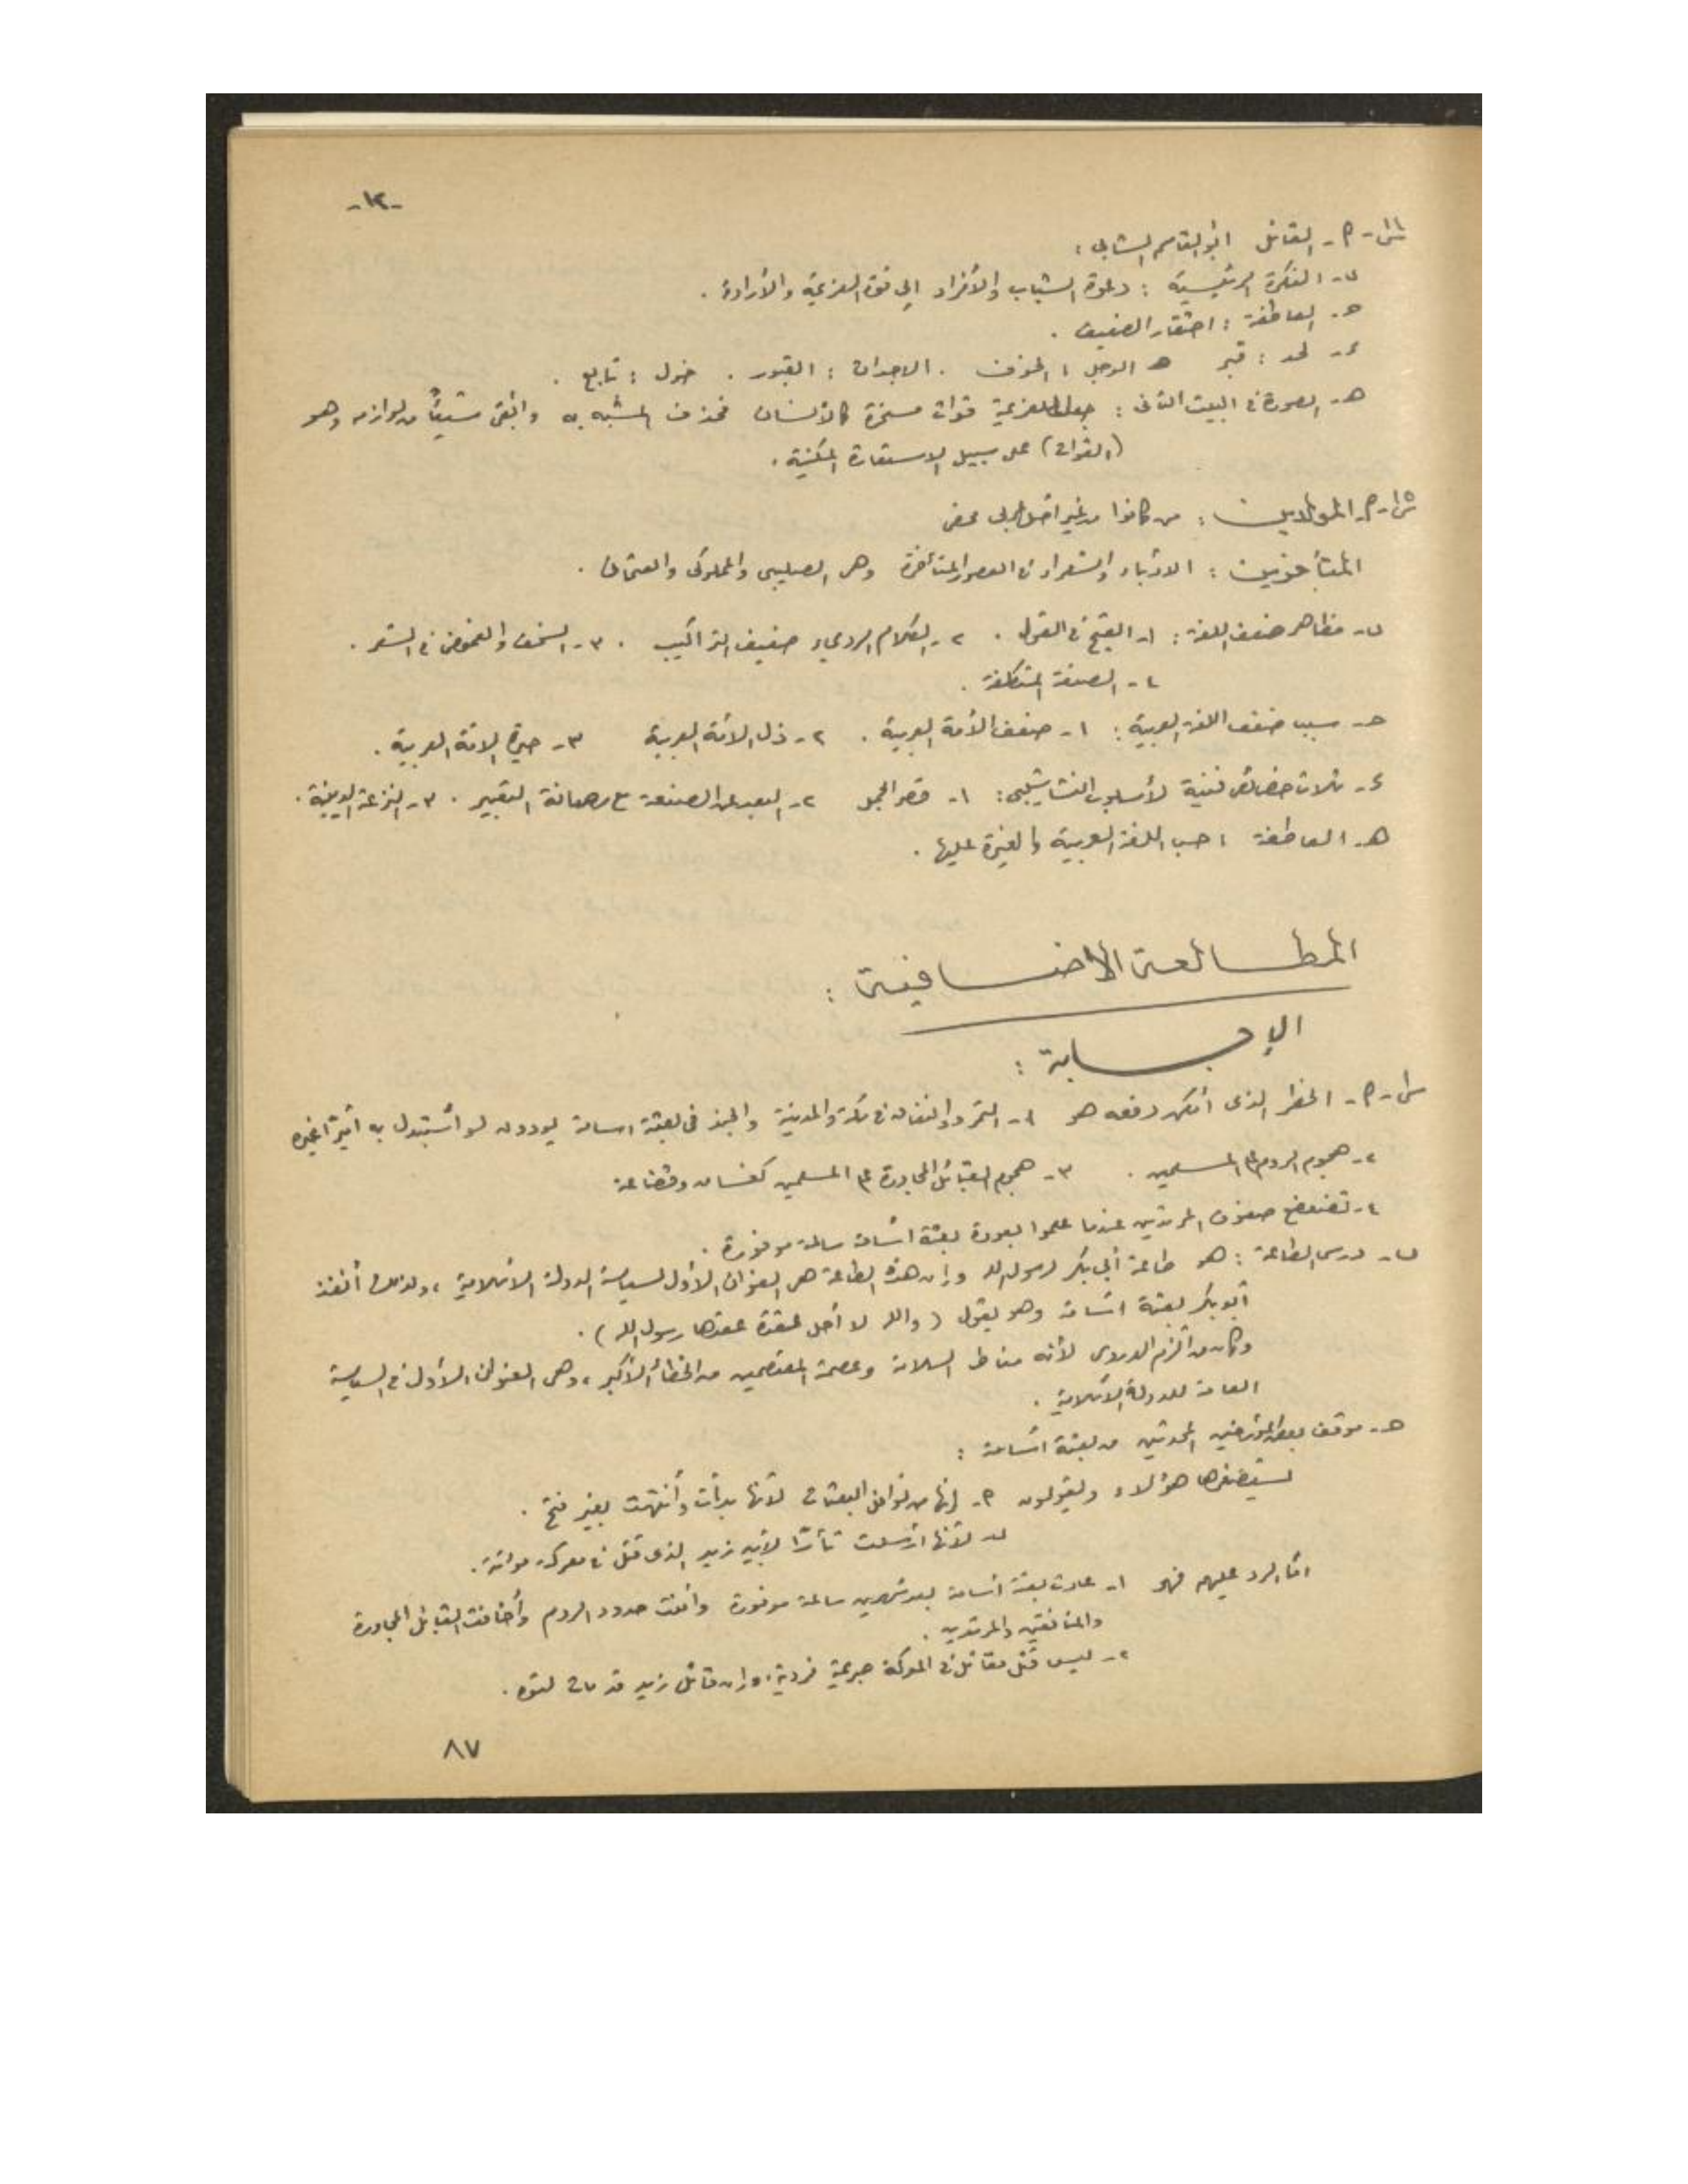 -١٢-
س١١- م- القائل أبو القاسم الشابي :
ب- الفكرة الرئيسية : دعوة الشباب والأفراد إلى قوة العزيمة والأرادة .
حـ- العاطفة : احتقار الضعيف .
ء- لحد : قبر حـ الوجل : الخوف . الاجداث : القبور . خول : تابع .
هـ- الصورة في البيت الثاني : جعل للعزيمة قوات مسخرة كالأنسان فحذف المشبه به وأبقى شيئاً من لوازمه وهو
(القوات) على سبيل الاستعارة المكنية .
س١٥- م- المولدين : من كانوا من غير أصل عربي محض
المتأخرين : الادباء والشعراء في العصور المتأخرة وهي الصليبي والمملوكي والعثماني .
ب- مظاهر ضعف اللغة : ١- القبح في القول . ٢- الكلام الرديء ضعيف التراكيب . ٣- السخف والغموض في الشعر .
٤- الصنعة المتكلفة .
حـ- سبب ضعف اللغة العربية : ١- ضعف الأمة العربية . ٢- ذل الأمة العربية ٣- حيرة الامة العربية .
ء- ثلاث خصائص فنية لأسلوب النشاشيبي : ١- قصر الجمل ٢- البعد عن الصنعة مع رصانة التعبير . ٣- النزعة الدينية .
هـ- العاطفة : حب اللغة العربية والغيرة عليها .
المطالعة الاضافية :
الإجابة :
س١- م- الخطر الذي أمكن دفعه هو ١- التمرد والنفاق في مكة والمدينة والجند في بعثة اسامة يودون لو أستبدل به أميراً غيره
٢- هجوم الروم على المسلمين . ٣- هجوم القبائل المجاورة على المسلمين كغسان وقضاعة
٤- تضعضع صفوف المرتدين عندما علموا بعودة بعثة أسامة سالمة موفورة .
ب- درس الطاعة : هو طاعة أبي بكر لرسول الله وإن هذه الطاعة هي العنوان الأول لسياسة الدولة الأسلامية ، ولذلك أنفذ
أبو بكر بعثة أسامة وهو يقول ( والله لا أحل عقدة عقدها رسول الله ) .
وكان من ألزم الدروس لأنه مناط السلامة وعصمة المعتصمين من الخطأ الأكبر ، وهي العنوان الأول في السياسة
العامة للدولة الأسلامية .
حـ- موقف بعض المؤرخين المحدثين من بعثة أسامة :
يستصغرها هؤلاء ويقولون م- إنها من نوافل البعثات لأنها بدأت وأنتهت بغير فتح .
ب- لأنها أرسلت ثأراً لأبيه زيد الذي قتل في معركة مؤتة .
أما الرد عليهم فهو ١- عادت بعثة أسامة بعد شهرين سالمة موفورة وأمنت حدود الروم وأخافت القبائل المجاورة
والمنافقين والمرتدين .
٢- ليس قتل مقاتل في المعركة جريمة فردية ، وإن قاتل زيد قد مات لتوه .
٨٧